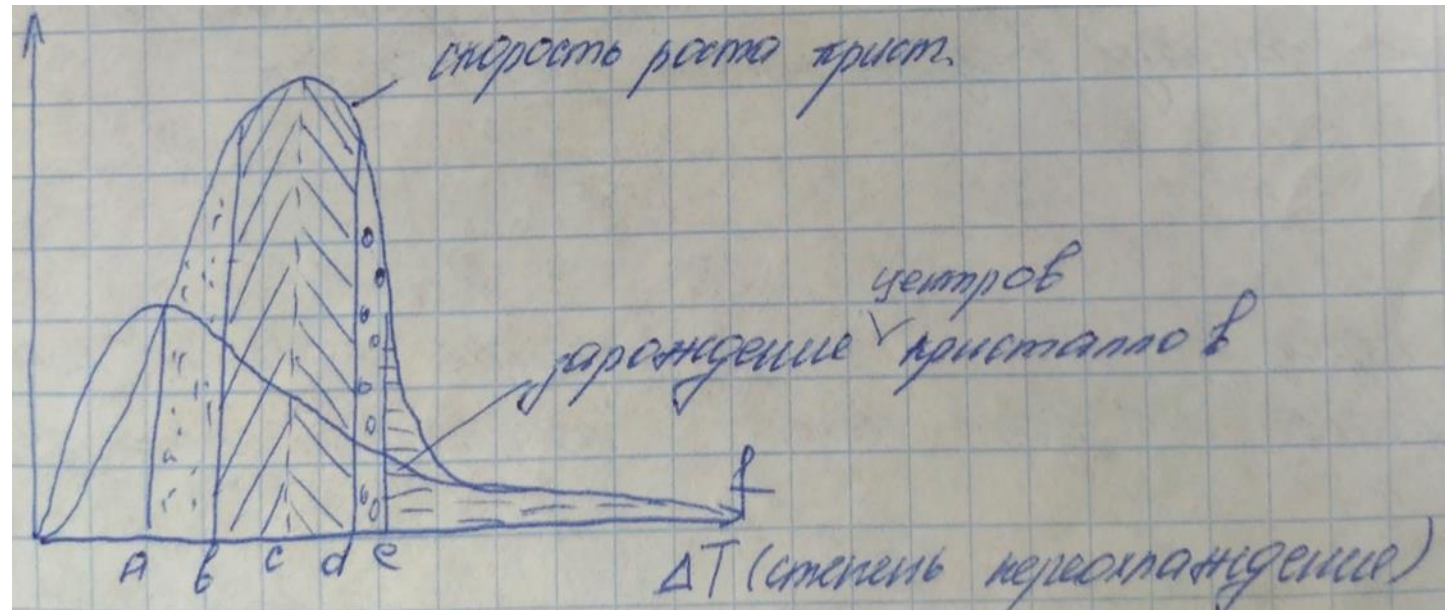 скорость роста крист.
центров
зарождение кристаллов
f
A b c d e
ΔT (степень переохлаждение)